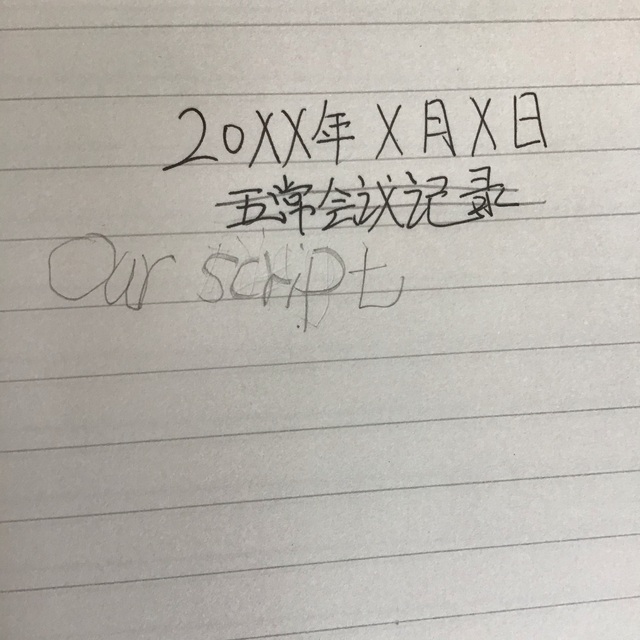 20XX年X月X日
五常会议记录
Our script